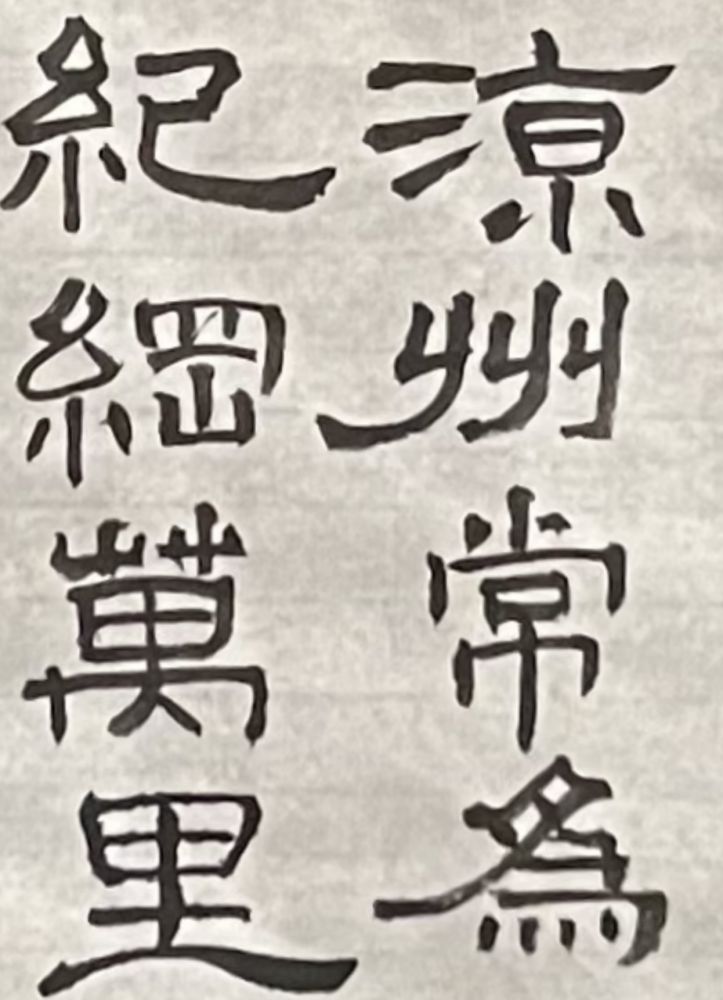 涼州常為
紀綱萬里